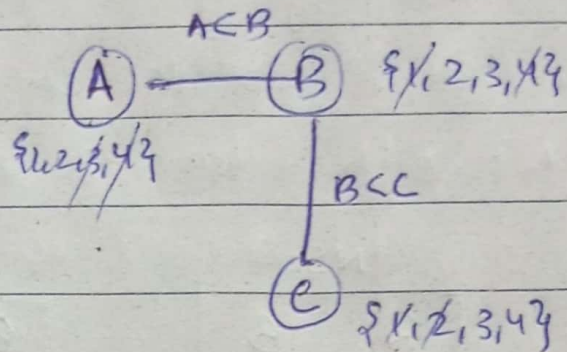 A<B
A B {1, 2, 3, 4}
{1, 2, 3, 4}
B<C
C
{1, 2, 3, 4}